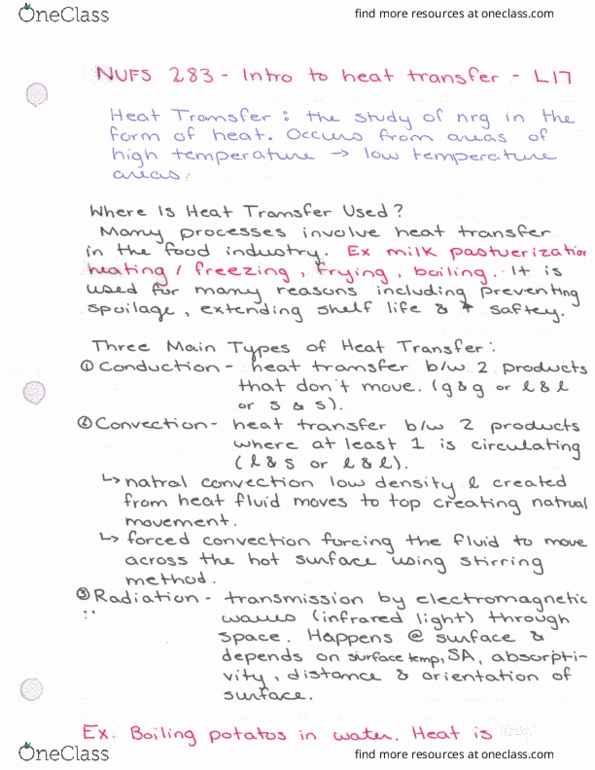 OneClass
find more resources at oneclass.com
NUFS 283 - Intro to heat transfer - L17
Heat Transfer : the study of nrg in the
form of heat. Occurs from areas of
high temperature → low temperature
areas.
Where Is Heat Transfer Used?
Many processes involve heat transfer
in the food industry. Ex milk pastuerization
heating / freezing, frying, boiling. It is
used for many reasons including preventing
spoilage, extending shelf life & ↑ saftey.
Three Main Types of Heat Transfer:
① Conduction - heat transfer b/w 2 products
that don't move. (g & g or l & l
or s & s).
② Convection - heat transfer b/w 2 products
where at least 1 is circulating
(l & s or l & l).
↳ natral convection low density l created
from heat fluid moves to top creating natrual
movement.
↳ forced convection forcing the fluid to move
across the hot surface using stirring
method.
③ Radiation - transmission by electromagnetic
waves (infrared light) through
space. Happens @ surface &
depends on surface temp, SA, absorpti-
vity, distance & orientation of
surface.
Ex. Boiling potatos in water. Heat is
OneClass
find more resources at oneclass.com